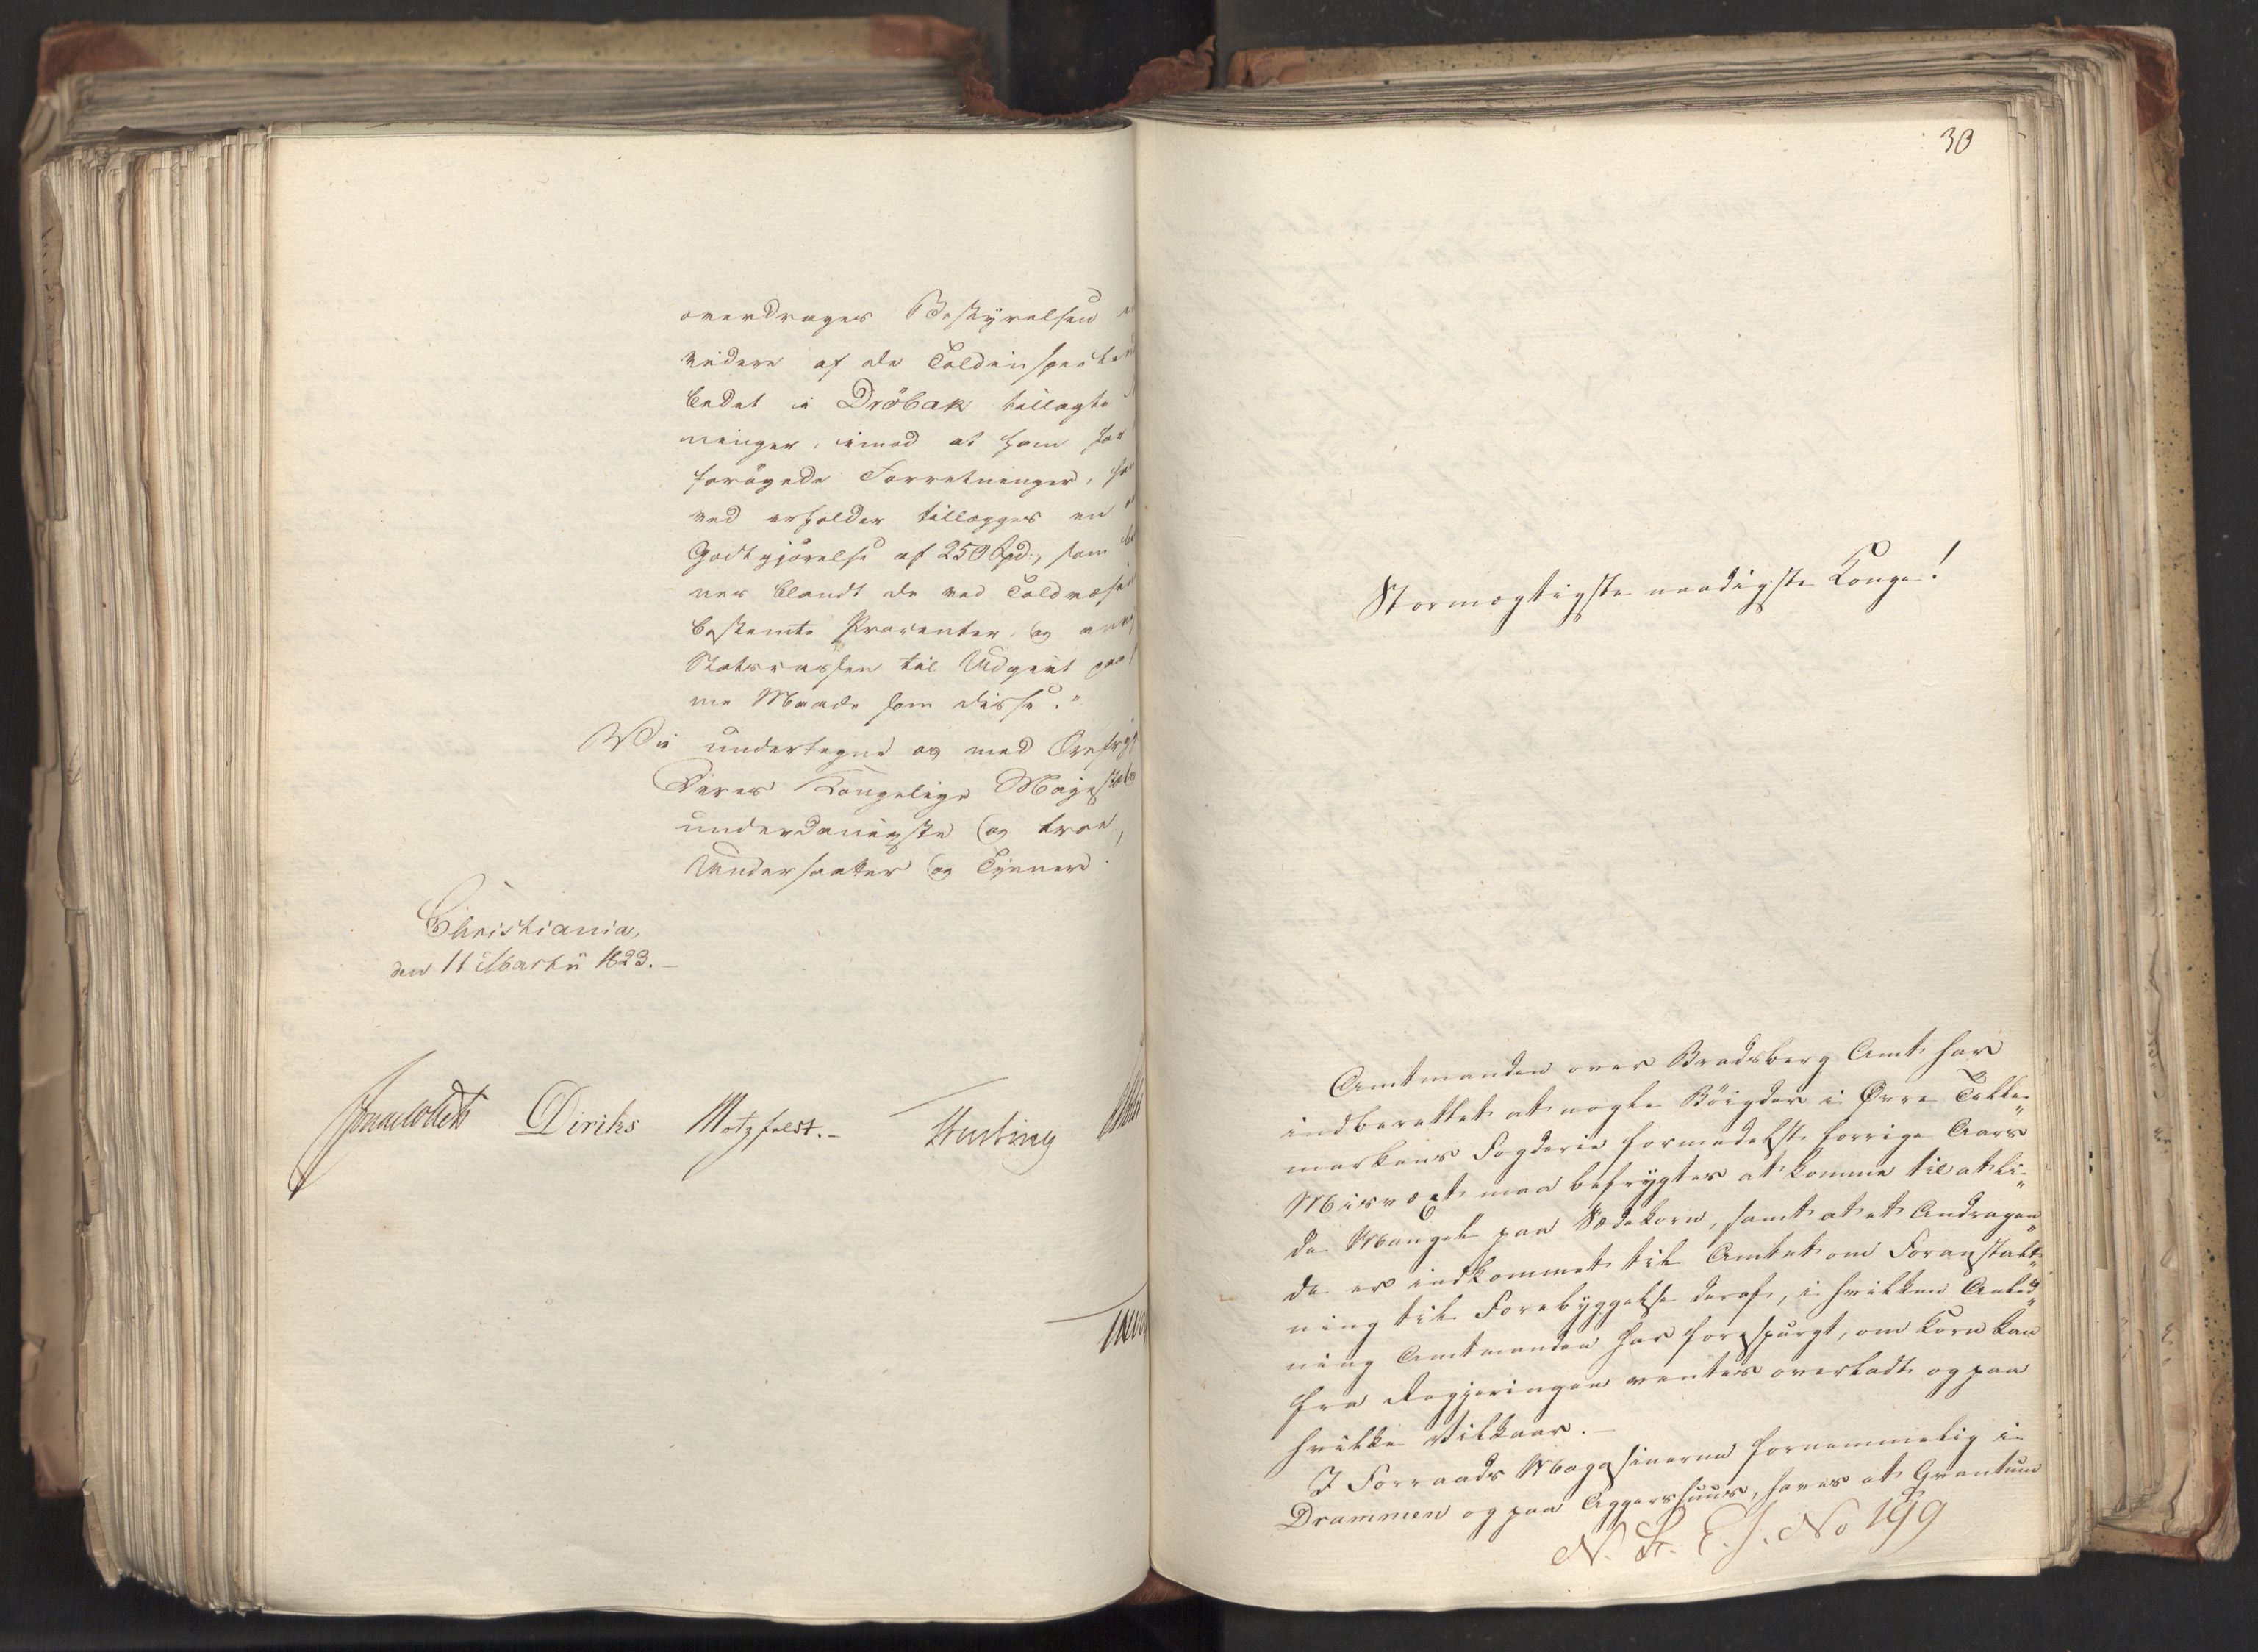 overdrages Bestyrelsen
videre af de Toldinspecteur
bedet i Dröbak tillagte
ninger, imod at ham for
forögede Forretninger, han
ved erholder tillægges en
Godtgjörelse af 250 Spd:, som
nes blandt de ved Toldvæsen
bestemte Procenter, og anvi
Statscassen til Udgivt paa
me Maade som disse."
Vi undertegne os med Ærefrygt
Deres Kongelige Majestæts
underdanigste og troe
Undersaatter og Tjenere.
Christiania,
den 11 Martii 1823.-
Sommerhielm Diriks Motzfeldt.- Fasting
30
Stormægtigste naadigste Konge!
Amtmanden over Bradsberg Amt har
indberettet at nogle Böigder i Øvre Telle-
markens Fogderie formedelst forrige Aars
Misvæxt maa befrygtes at komme til at li-
de Mangel paa Sædekorn, samt at et Andragen-
de er indkommet til Amtet om Foranstalt-
ning til Forebyggelse deraf, i hvilken Anled-
ning Amtmanden har forespurgt, om Korn kan
fra Regjeringen ventes overladt og paa
hvilke Vilkaar.-
I Forraads Magasinerne fornemmelig i
Drammen og paa Aggershuus, haves et Qvantum
N. St. E. J. No 199